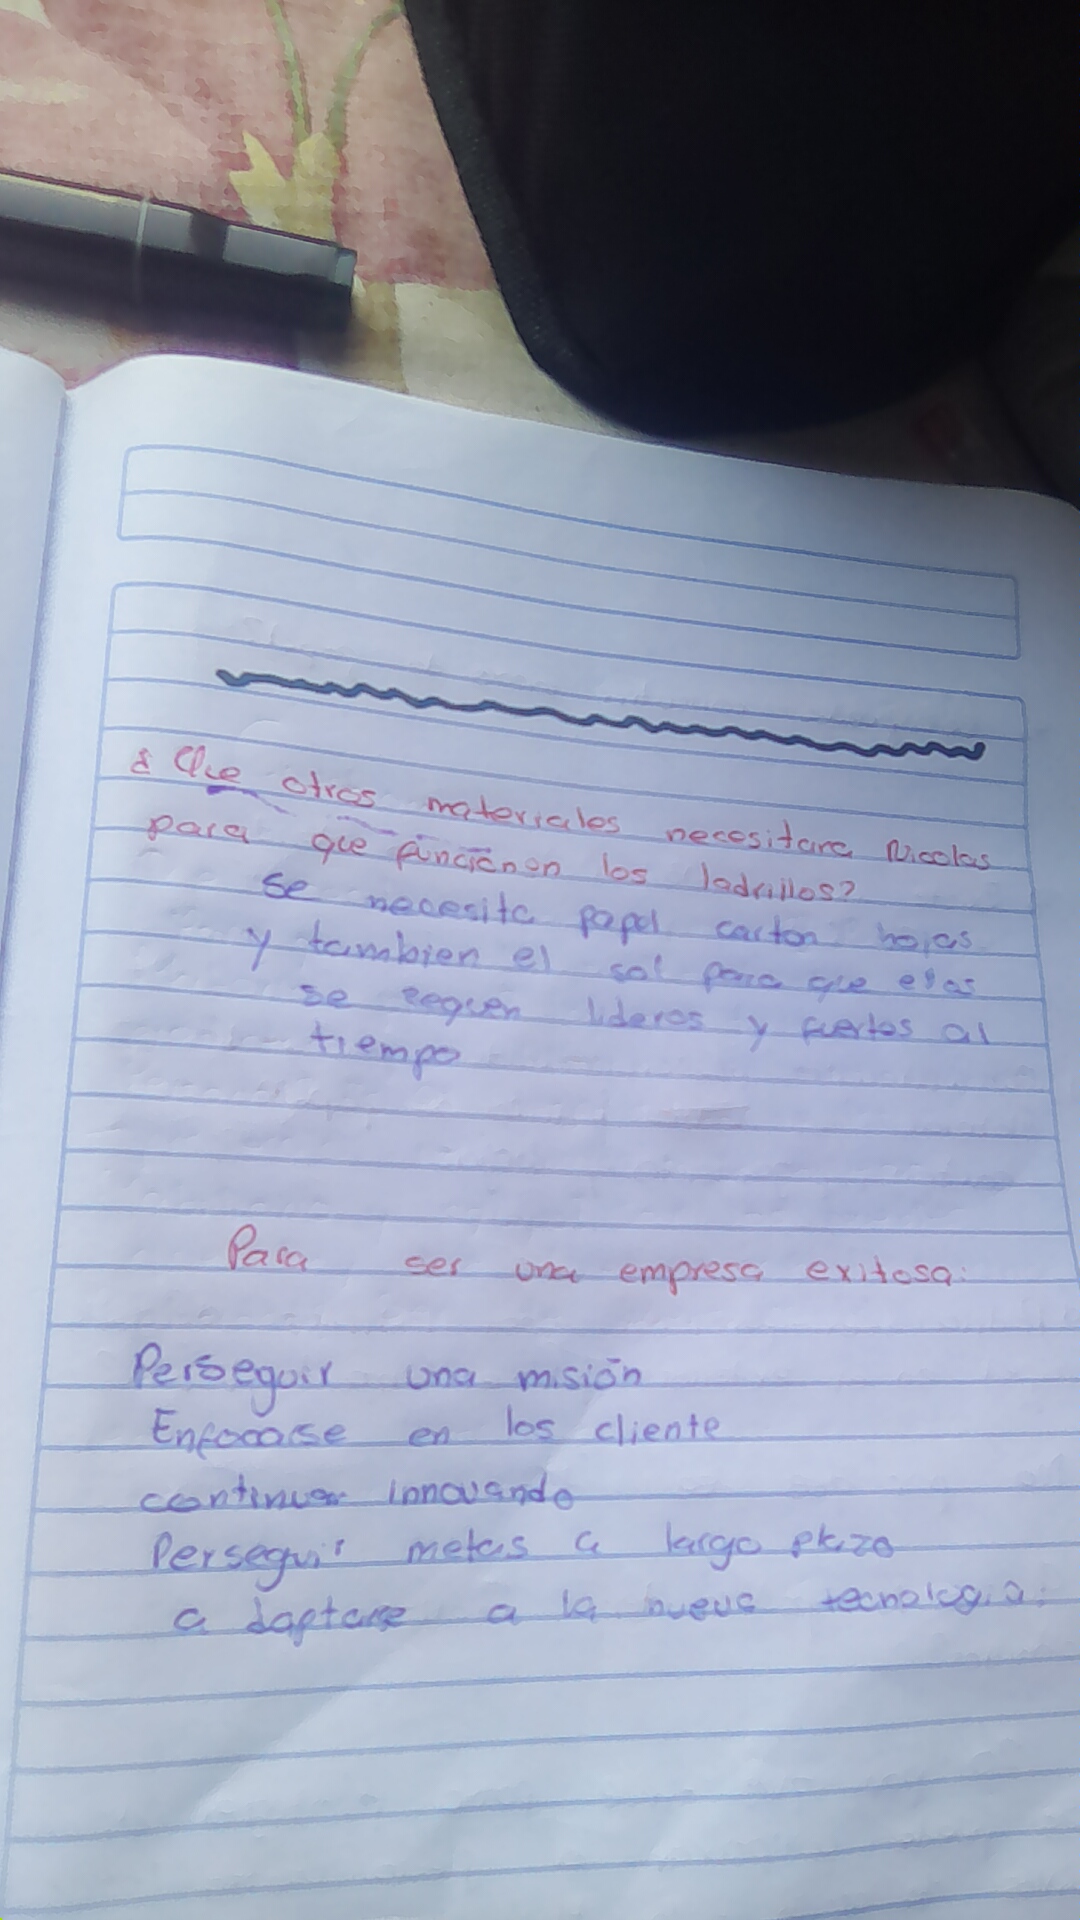 ¿Que otros materiales necesitara Nicolas
para que funcionen los ladrillos?
se necesita papel carton hojas
y tambien el sol para que
se sequen lideros y fuertes al
tiempo
Para ser una empresa exitosa:
Perseguir una misión
Enfocarse en los cliente
continuar innovando
Perseguir metas a largo plazo
a daptarse a la nueva tecnologia.